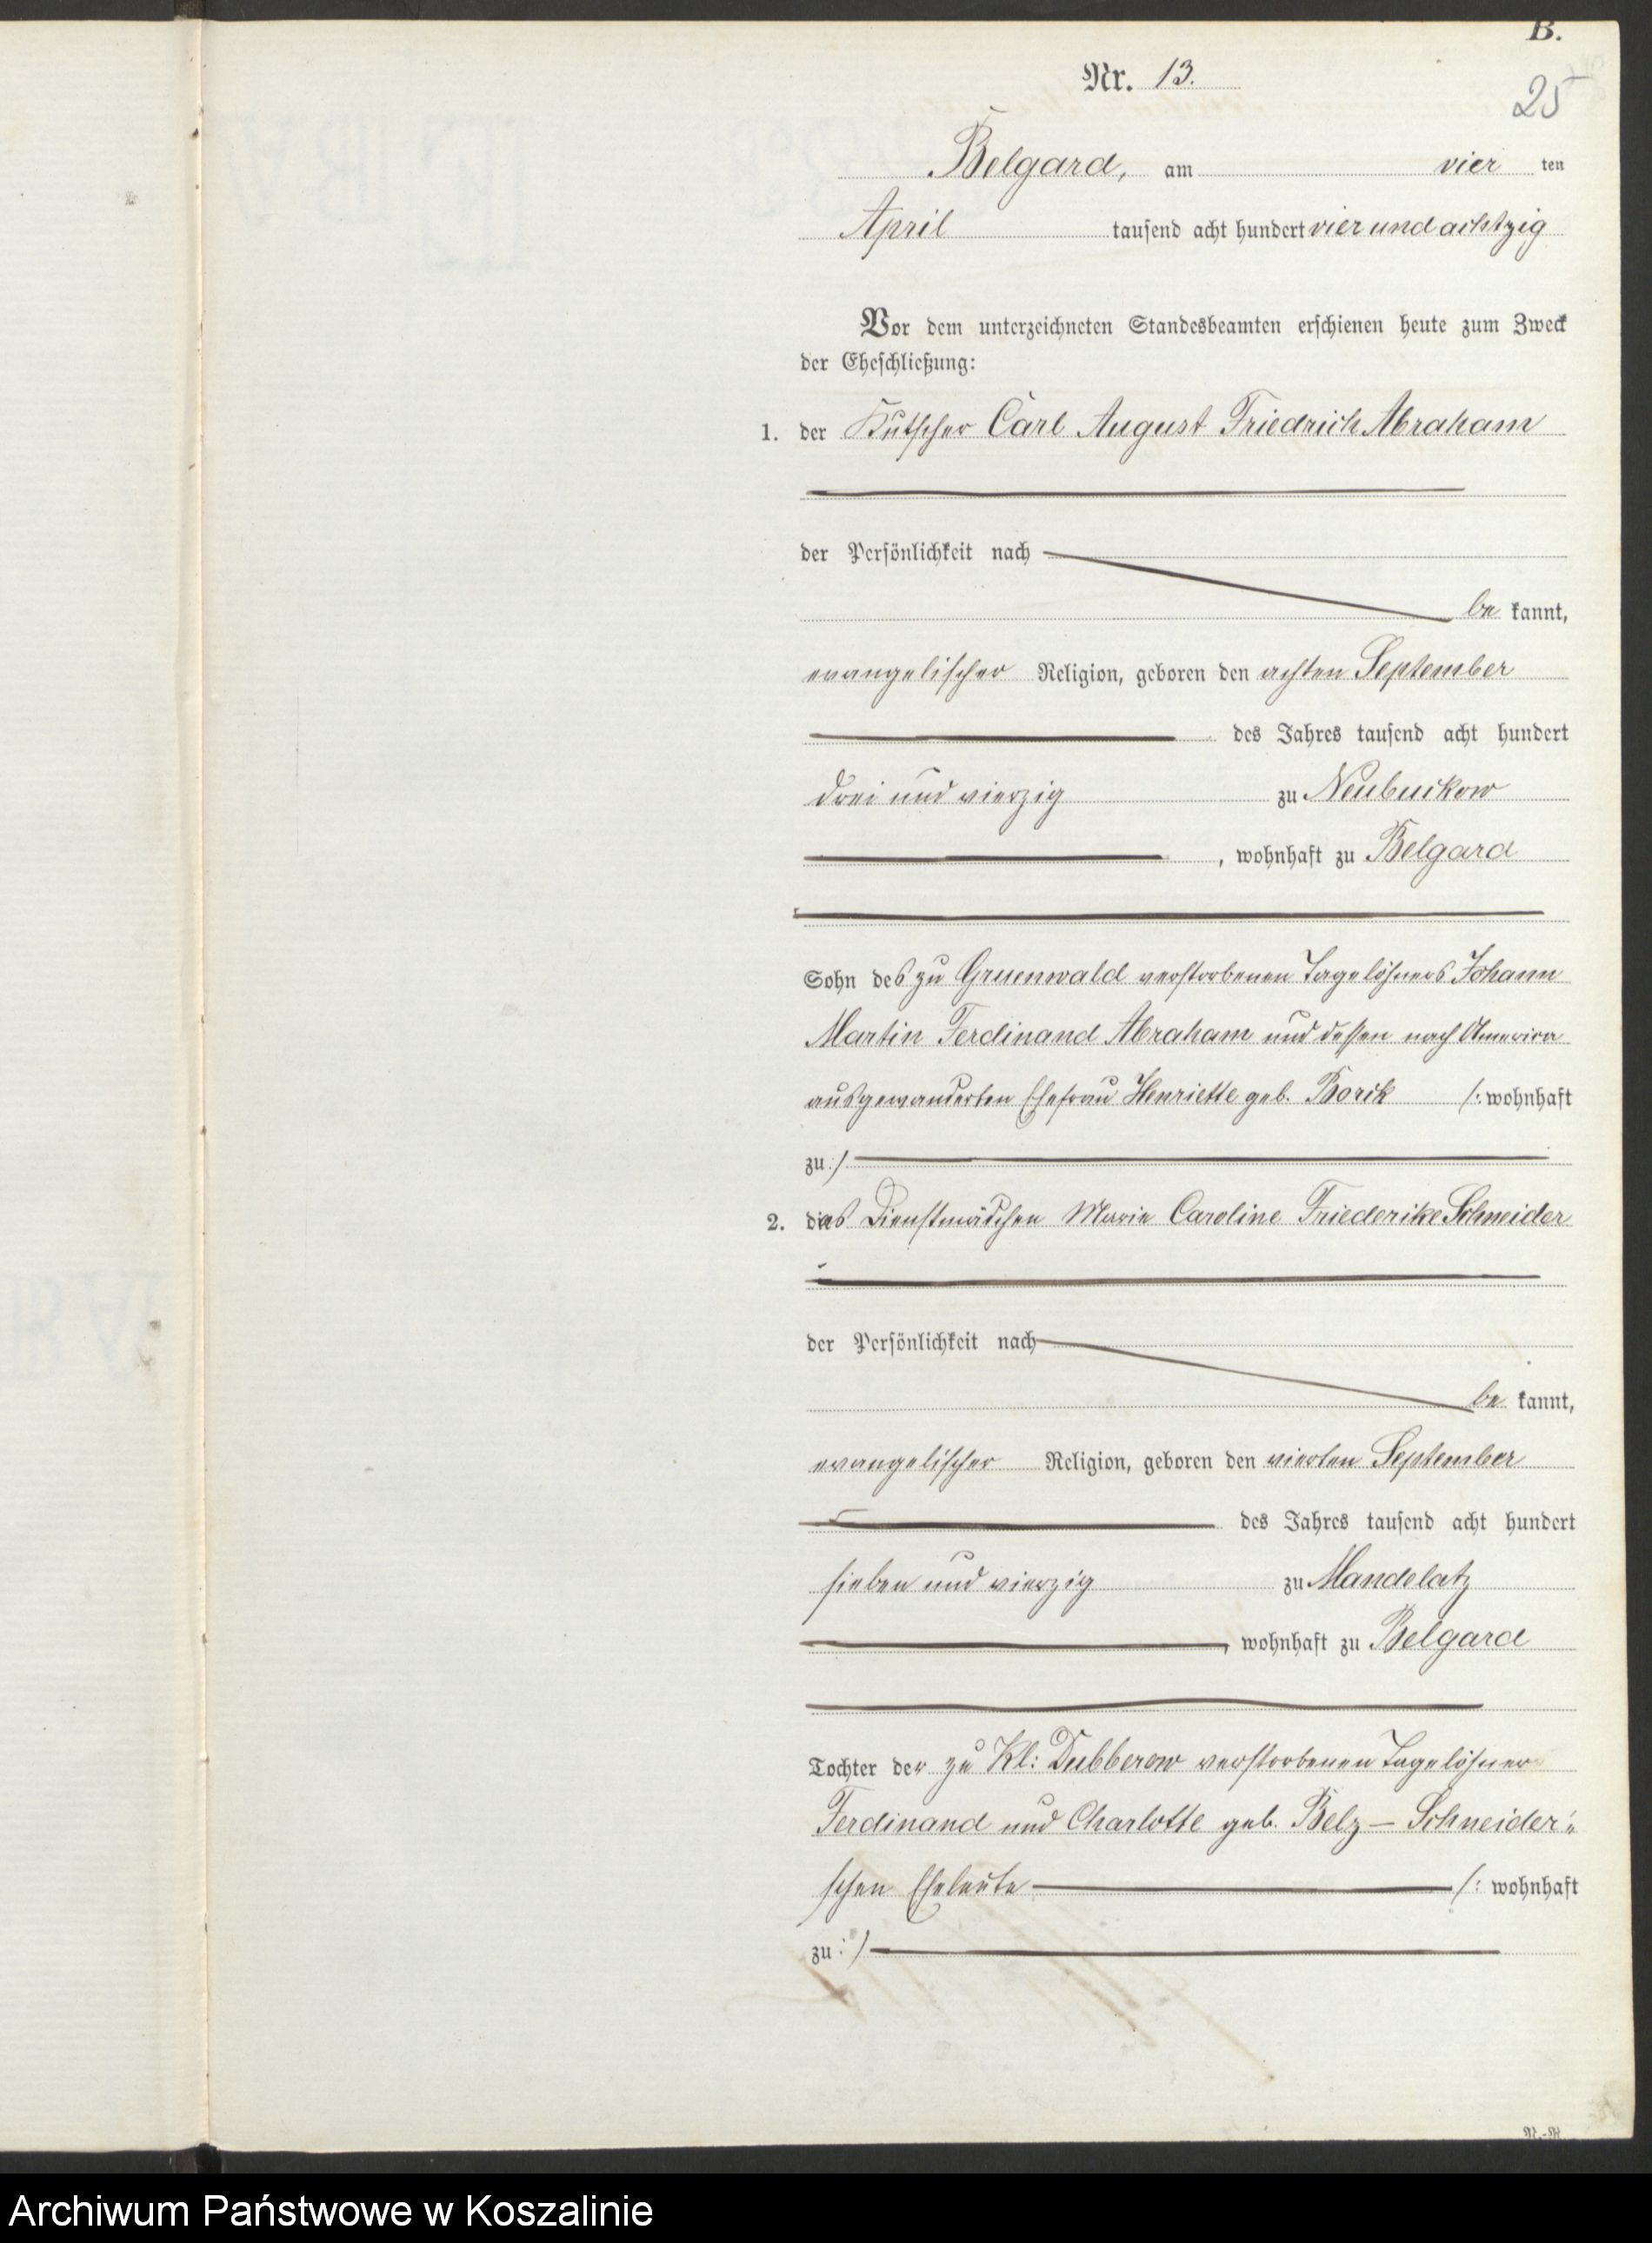 B.
Nr. 13.
25
Belgard, am vier ten
April tausend acht hundert vier und achtzig
Vor dem unterzeichneten Standesbeamten erschienen heute zum Zweck
der Eheschließung:
1. der Kutscher Carl August Friedrich Abraham
der Persönlichkeit nach
be kannt,
evangelischer Religion, geboren den achten September
des Jahres tausend acht hundert
drei und vierzig zu Neubuckow
, wohnhaft zu Belgard
Sohn des zu Gruenwald verstorbenen Tagelöhners Johann
Martin Ferdinand Abraham und dessen nach America
ausgewanderten Ehefrau Henriette geb. Borik /: wohnhaft
zu :/
2. das Dienstmädchen Marie Caroline Friederike Schneider
der Persönlichkeit nach
be kannt,
evangelischer Religion, geboren den vierten September
des Jahres tausend acht hundert
sieben und vierzig zu Mandelatz
, wohnhaft zu Belgard
Tochter der zu Kl: Dubberow verstorbenen Tagelöhner
Ferdinand und Charlotte geb. Belz – Schneider'
schen Eheleute /: wohnhaft
zu :/
Archiwum Państwowe w Koszalinie